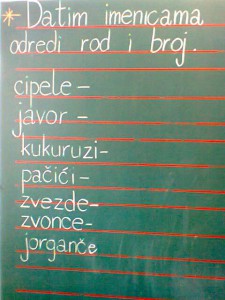 * Datim imenicama
odredi rod i broj.
cipele -
javor -
kukuruzi -
pačići -
zvezde -
zvonce -
jorganče